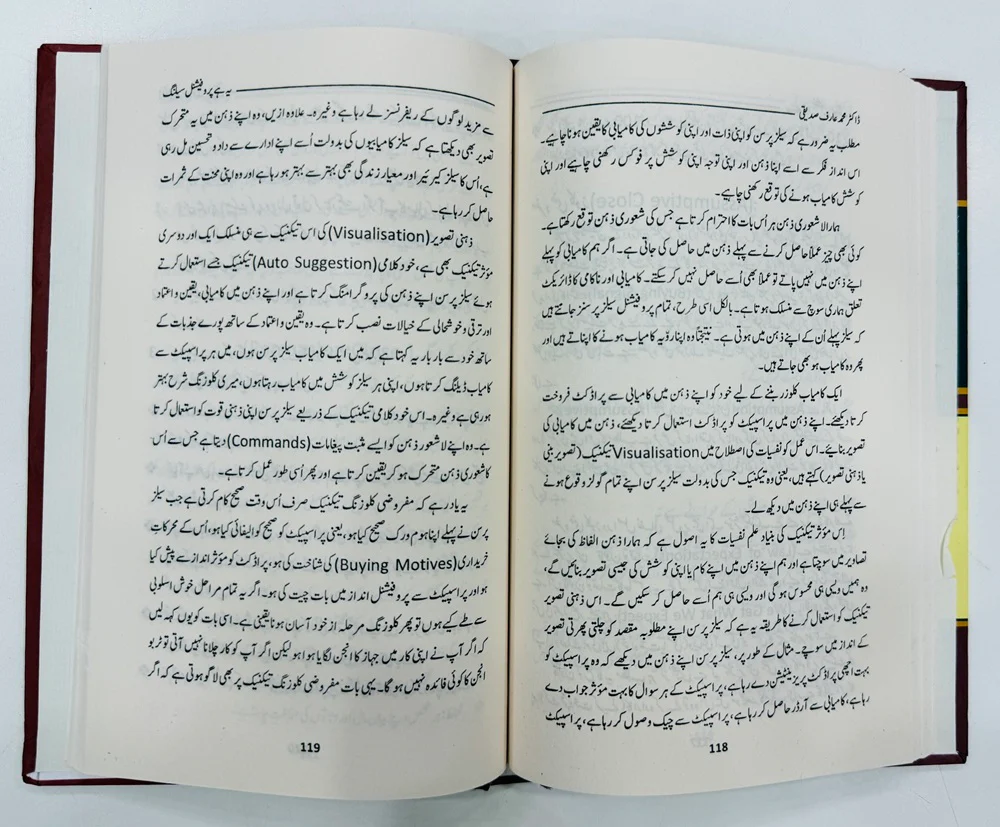 ڈاکٹر محمد عارف صدیقی
مطلب یہ ضرور ہے کہ سیلز پرسن کو اپنی ذات اور اپنی کوششوں کی کامیابی کا یقین ہونا چاہیے۔
اس انداز فکر سے اسے اپنا ذہن اور اپنی توجہ اپنی کوشش پر فوکس رکھنی چاہیے اور اپنی
کوشش کامیاب ہونے کی توقع رکھنی چاہیے۔
ہمارا لاشعوری ذہن ہر اُس بات کا احترام کرتا ہے جس کی شعوری ذہن توقع رکھتا ہے۔
کوئی بھی چیز عملاً حاصل کرنے سے پہلے ذہن میں حاصل کی جاتی ہے۔ اگر ہم کامیابی کو پہلے
اپنے ذہن میں نہیں پاتے تو عملاً بھی اُسے حاصل نہیں کر سکتے۔ کامیابی اور ناکامی کا ڈائریکٹ
تعلق ہماری سوچ سے منسلک ہوتا ہے۔ بالکل اسی طرح، تمام پروفیشنل سیلز پرسنز جانتے ہیں
کہ سیلز پہلے اُن کے اپنے ذہن میں ہوتی ہے۔ نتیجتاً وہ اپنا رویّہ کامیاب ہونے کا اپناتے ہیں اور
پھر وہ کامیاب ہو بھی جاتے ہیں۔
ایک کامیاب کلوزر بننے کے لیے خود کو اپنے ذہن میں کامیابی سے پراڈکٹ فروخت
کرتا دیکھئے۔ اپنے ذہن میں پراسپیکٹ کو پراڈکٹ استعمال کرتا دیکھئے، ذہن میں کامیابی کی
تصویر بنایئے۔ اس عمل کو نفسیات کی اصطلاح میں Visualisation تیکنیک (تصویر بینی
یا ذہنی تصویر) کہتے ہیں، یعنی وہ تیکنیک جس کی بدولت سیلز پرسن اپنے تمام گولز وقوع ہونے
سے پہلے ہی اپنے ذہن میں دیکھ لے۔
اِس مؤثر تیکنیک کی بنیاد علم نفسیات کا یہ اصول ہے کہ ہمارا ذہن الفاظ کی بجائے
تصاویر میں سوچتا ہے اور ہم اپنے ذہن میں اپنے کام یا اپنی کوشش کی جیسی تصویر بنائیں گے،
وہ ہمیں ویسی ہی محسوس ہو گی اور ویسی ہی ہم اُسے حاصل کر سکیں گے۔ اس ذہنی تصویر
تیکنیک کو استعمال کرنے کا طریقہ یہ ہے کہ سیلز پرسن اپنے مطلوبہ مقصد کو چلتی پھرتی تصویر
کے انداز میں سوچے۔ مثال کے طور پر، سیلز پرسن اپنے ذہن میں دیکھے کہ وہ پراسپیکٹ کو
بہت اچھی پراڈکٹ پریزنٹیشن دے رہا ہے، پراسپیکٹ کے ہر سوال کا بہت مؤثر جواب دے
رہا ہے، کامیابی سے آرڈر حاصل کر رہا ہے، پراسپیکٹ سے چیک وصول کر رہا ہے، پراسپیکٹ
118
یہ ہے پروفیشنل سیلنگ
سے مزید لوگوں کے ریفرنسز لے رہا ہے وغیرہ۔ علاوہ ازیں، وہ اپنے ذہن میں یہ متحرک
تصویر بھی دیکھتا ہے کہ سیلز کامیابیوں کی بدولت اُسے اپنے ادارے سے داد و تحسین مل رہی
ہے، اُس کا سیلز کیرئیر اور معیار زندگی بھی بہتر سے بہتر ہو رہا ہے اور وہ اپنی محنت کے ثمرات
حاصل کر رہا ہے۔
ذہنی تصویر (Visualisation) کی اس تیکنیک سے ہی منسلک ایک اور دوسری
مؤثر تیکنیک بھی ہے، خود کلامی (Auto Suggestion) تیکنیک جسے استعمال کرتے
ہوئے سیلز پرسن اپنے ذہن کی پروگرامنگ کرتا ہے اور اپنے ذہن میں کامیابی، یقین و اعتماد
اور ترقی و خوشحالی کے خیالات نصب کرتا ہے۔ وہ یقین و اعتماد کے ساتھ پورے جذبات کے
ساتھ خود سے بار بار یہ کہتا ہے کہ میں ایک کامیاب سیلز پرسن ہوں، میں ہر پراسپیکٹ سے
کامیاب ڈیلنگ کرتا ہوں، اپنی ہر سیلز کوشش میں کامیاب رہتا ہوں، میری کلوزنگ شرح بہتر
ہو رہی ہے وغیرہ۔ اس خود کلامی تیکنیک کے ذریعے سیلز پرسن اپنی ذہنی قوت کو استعمال کرتا
ہے۔ وہ اپنے لاشعور ذہن کو ایسے مثبت پیغامات (Commands) دیتا ہے جس سے اُس
کا شعوری ذہن متحرک ہو کر یقین کرتا ہے اور پھر اُسی طور عمل کرتا ہے۔
یہ یاد رہے کہ مفروضی کلوزنگ تیکنیک صرف اُس وقت صحیح کام کرتی ہے جب سیلز
پرسن نے پہلے اپنا ہوم ورک صحیح کیا ہو، یعنی پراسپیکٹ کو صحیح کوالیفائی کیا ہو، اُس کے محرکاتِ
خریداری (Buying Motives) کی شناخت کی ہو، پراڈکٹ کو مؤثر انداز سے پیش کیا
ہو اور پراسپیکٹ سے پروفیشنل انداز میں بات چیت کی ہو۔ اگر یہ تمام مراحل خوش اسلوبی
سے طے کیے ہوں تو پھر کلوزنگ مرحلہ از خود آسان ہونا یقینی ہے۔ اسی بات کو یوں کہہ لیں
کہ اگر آپ نے اپنی کار میں جہاز کا انجن لگایا ہوا ہو لیکن اگر آپ کو کار چلانا نہیں آتی تو ٹربو
انجن کا کوئی فائدہ نہیں ہو گا۔ یہی بات مفروضی کلوزنگ تیکنیک پر بھی لاگو ہوتی ہے کہ اگر
119